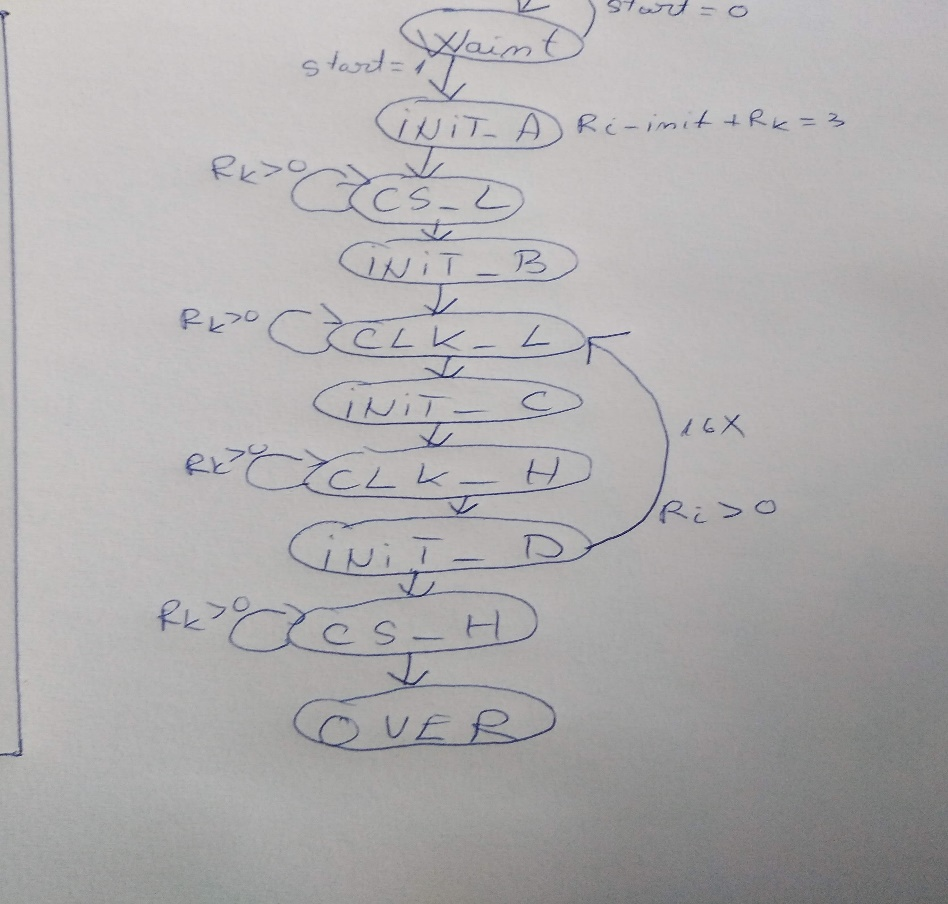 start = 0
Waint
start = 1
INIT_A Ri-init + Rk = 3
Rk>0 CS_L
INIT_B
Rk>0 CLK_L
INIT_C
16X
Rk>0 CLK_H
Ri>0
INIT_D
Rk>0 CS_H
OVER